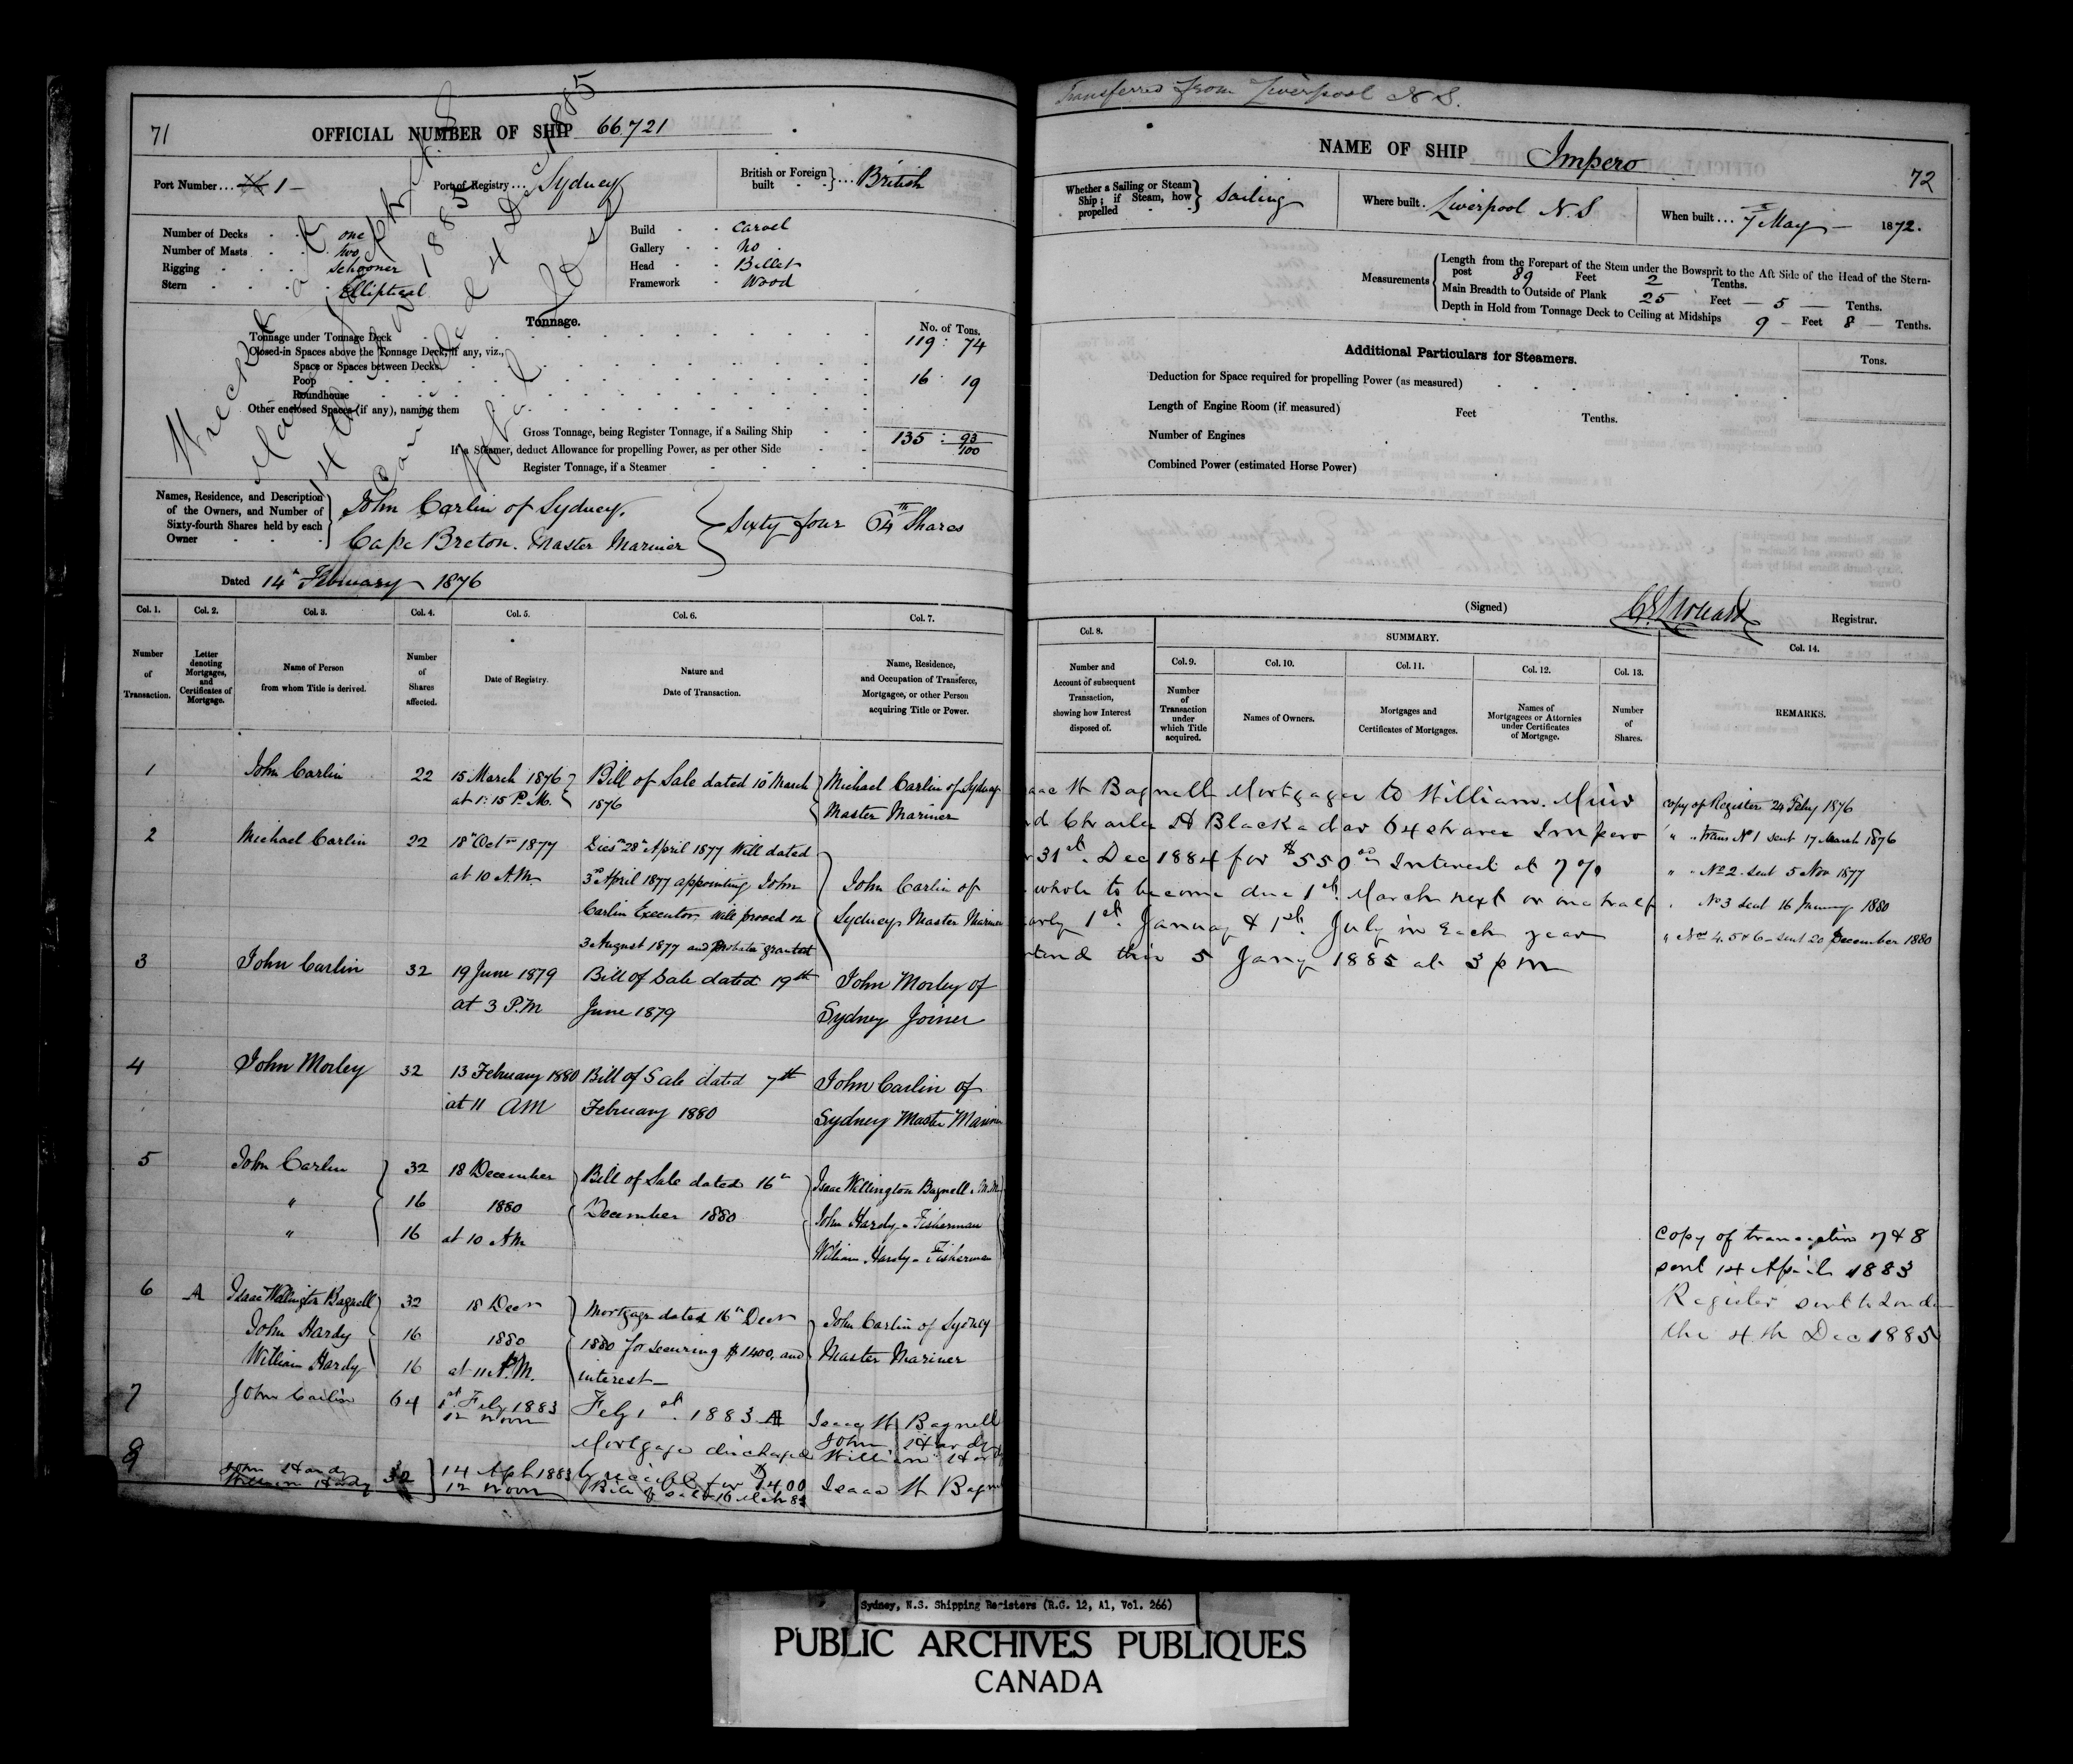 71
OFFICIAL NUMBER OF SHIP 66.721
Port Number ... 1 -
Port of Registry ... Sydney
British or Foreign built } ... British
Number of Decks - one
Number of Masts - two
Rigging - Schooner
Stern - Elliptical
Build - Carvel
Gallery - No
Head - Billet
Framework - Wood
Wrecked at
14th
1885
4 Dec 1885
Tonnage.
No. of Tons.
Tonnage under Tonnage Deck 119 : 74
Closed-in Spaces above the Tonnage Deck, if any, viz.,
Space or Spaces between Decks
Poop 16 . 19
Roundhouse
Other enclosed Spaces (if any), naming them
Gross Tonnage, being Register Tonnage, if a Sailing Ship 135 : 93/100
If a Steamer, deduct Allowance for propelling Power, as per other Side
Register Tonnage, if a Steamer
Names, Residence, and Description of the Owners, and Number of Sixty-fourth Shares held by each Owner
John Carlin of Sydney,
Cape Breton. Master Mariner
Sixty four 64th Shares
Dated 14th February 1876
Col. 1. Col. 2. Col. 3. Col. 4. Col. 5. Col. 6. Col. 7.
Number of Transaction.
Letter denoting Mortgages, and Certificates of Mortgage.
Name of Person from whom Title is derived.
Number of Shares affected.
Date of Registry.
Nature and Date of Transaction.
Name, Residence, and Occupation of Transferee, Mortgagee, or other Person acquiring Title or Power.
1 John Carlin 22 15 March 1876 Bill of Sale dated 10th March Michael Carlin of Sydney
at 1:15 P.M. 1876 Master Mariner
2 Michael Carlin 22 18th Octr 1877 Died 28th April 1877 Will dated
at 10 A.M. 3rd April 1877 appointing John John Carlin of
Carlin Executor Will proved on Sydney Master Mariner
3 August 1877 and Probate granted
3 John Carlin 32 19 June 1879 Bill of Sale dated 19th John Morley of
at 3 P.M June 1879 Sydney Joiner
4 John Morley 32 13 February 1880 Bill of Sale dated 7th John Carlin of
at 11 AM February 1880 Sydney Master Mariner
5 John Carlin 32 18 December Bill of Sale dated 16th Isaac Willington Bagnell . M.M
" 16 1880 December 1880 John Hardy - Fisherman
" 16 at 10 AM William Hardy - Fisherman
6 A Isaac Wellington Bagnell 32 18 Decr Mortgage dated 16th Decr John Carlin of Sydney
John Hardy 16 1880 1880 for securing $1400. and Master Mariner
William Hardy 16 at 11 A.M. interest
7 John Carlin 64 1st Feby 1883 Feby 1st. 1883 A Isaac W Bagnell
12 noon Mortgage discharged John Hardy
William Hardy
8 John Hardy 32 14 Apl 1883 by receipt for $1400 Isaac W Bagnell
William Hardy 12 noon Bill of Sale 16 Mch 83
Transferred from Liverpool N S.
NAME OF SHIP Impero
72
Whether a Sailing or Steam Ship; if Steam, how propelled } Sailing
Where built . Liverpool N. S
When built ... 7 May - 1872.
Measurements
Length from the Forepart of the Stem under the Bowsprit to the Aft Side of the Head of the Stern-post 89 Feet 2 Tenths.
Main Breadth to Outside of Plank 25 Feet - 5 - Tenths.
Depth in Hold from Tonnage Deck to Ceiling at Midships 9 - Feet 8 - Tenths.
Additional Particulars for Steamers.
Tons.
Deduction for Space required for propelling Power (as measured)
Length of Engine Room (if measured) Feet Tenths.
Number of Engines
Combined Power (estimated Horse Power)
(Signed) Registrar.
Col. 8. SUMMARY. Col. 14.
Col. 9. Col. 10. Col. 11. Col. 12. Col. 13.
Number and Account of subsequent Transaction, showing how Interest disposed of.
Number of Transaction under which Title acquired.
Names of Owners.
Mortgages and Certificates of Mortgages.
Names of Mortgagees or Attornies under Certificates of Mortgage.
Number of Shares.
REMARKS.
W Bagnell Mortgages to William
Charles H 64 shares Impero
31st. Dec 1884 for $550 00 Interest at 7 %
whole to become due 1st March next or one half
1st. January & 1st. July in Each year
this 5 Jany 1885 at 3 p m
Copy of Register 24 Feby 1876
" " trans No 1 sent 17 March 1876
" " No 2 sent 5 Nov 1877
" No 3 sent 16 January 1880
" Nos 4. 5 & 6 - sent 20 December 1880
Copy of transaction 7 & 8
sent 14 April 1883
Register sent to London
the 4th Dec 1885
Sydney, N.S. Shipping Registers (R.G. 12, A1, Vol. 266)
PUBLIC ARCHIVES PUBLIQUES
CANADA